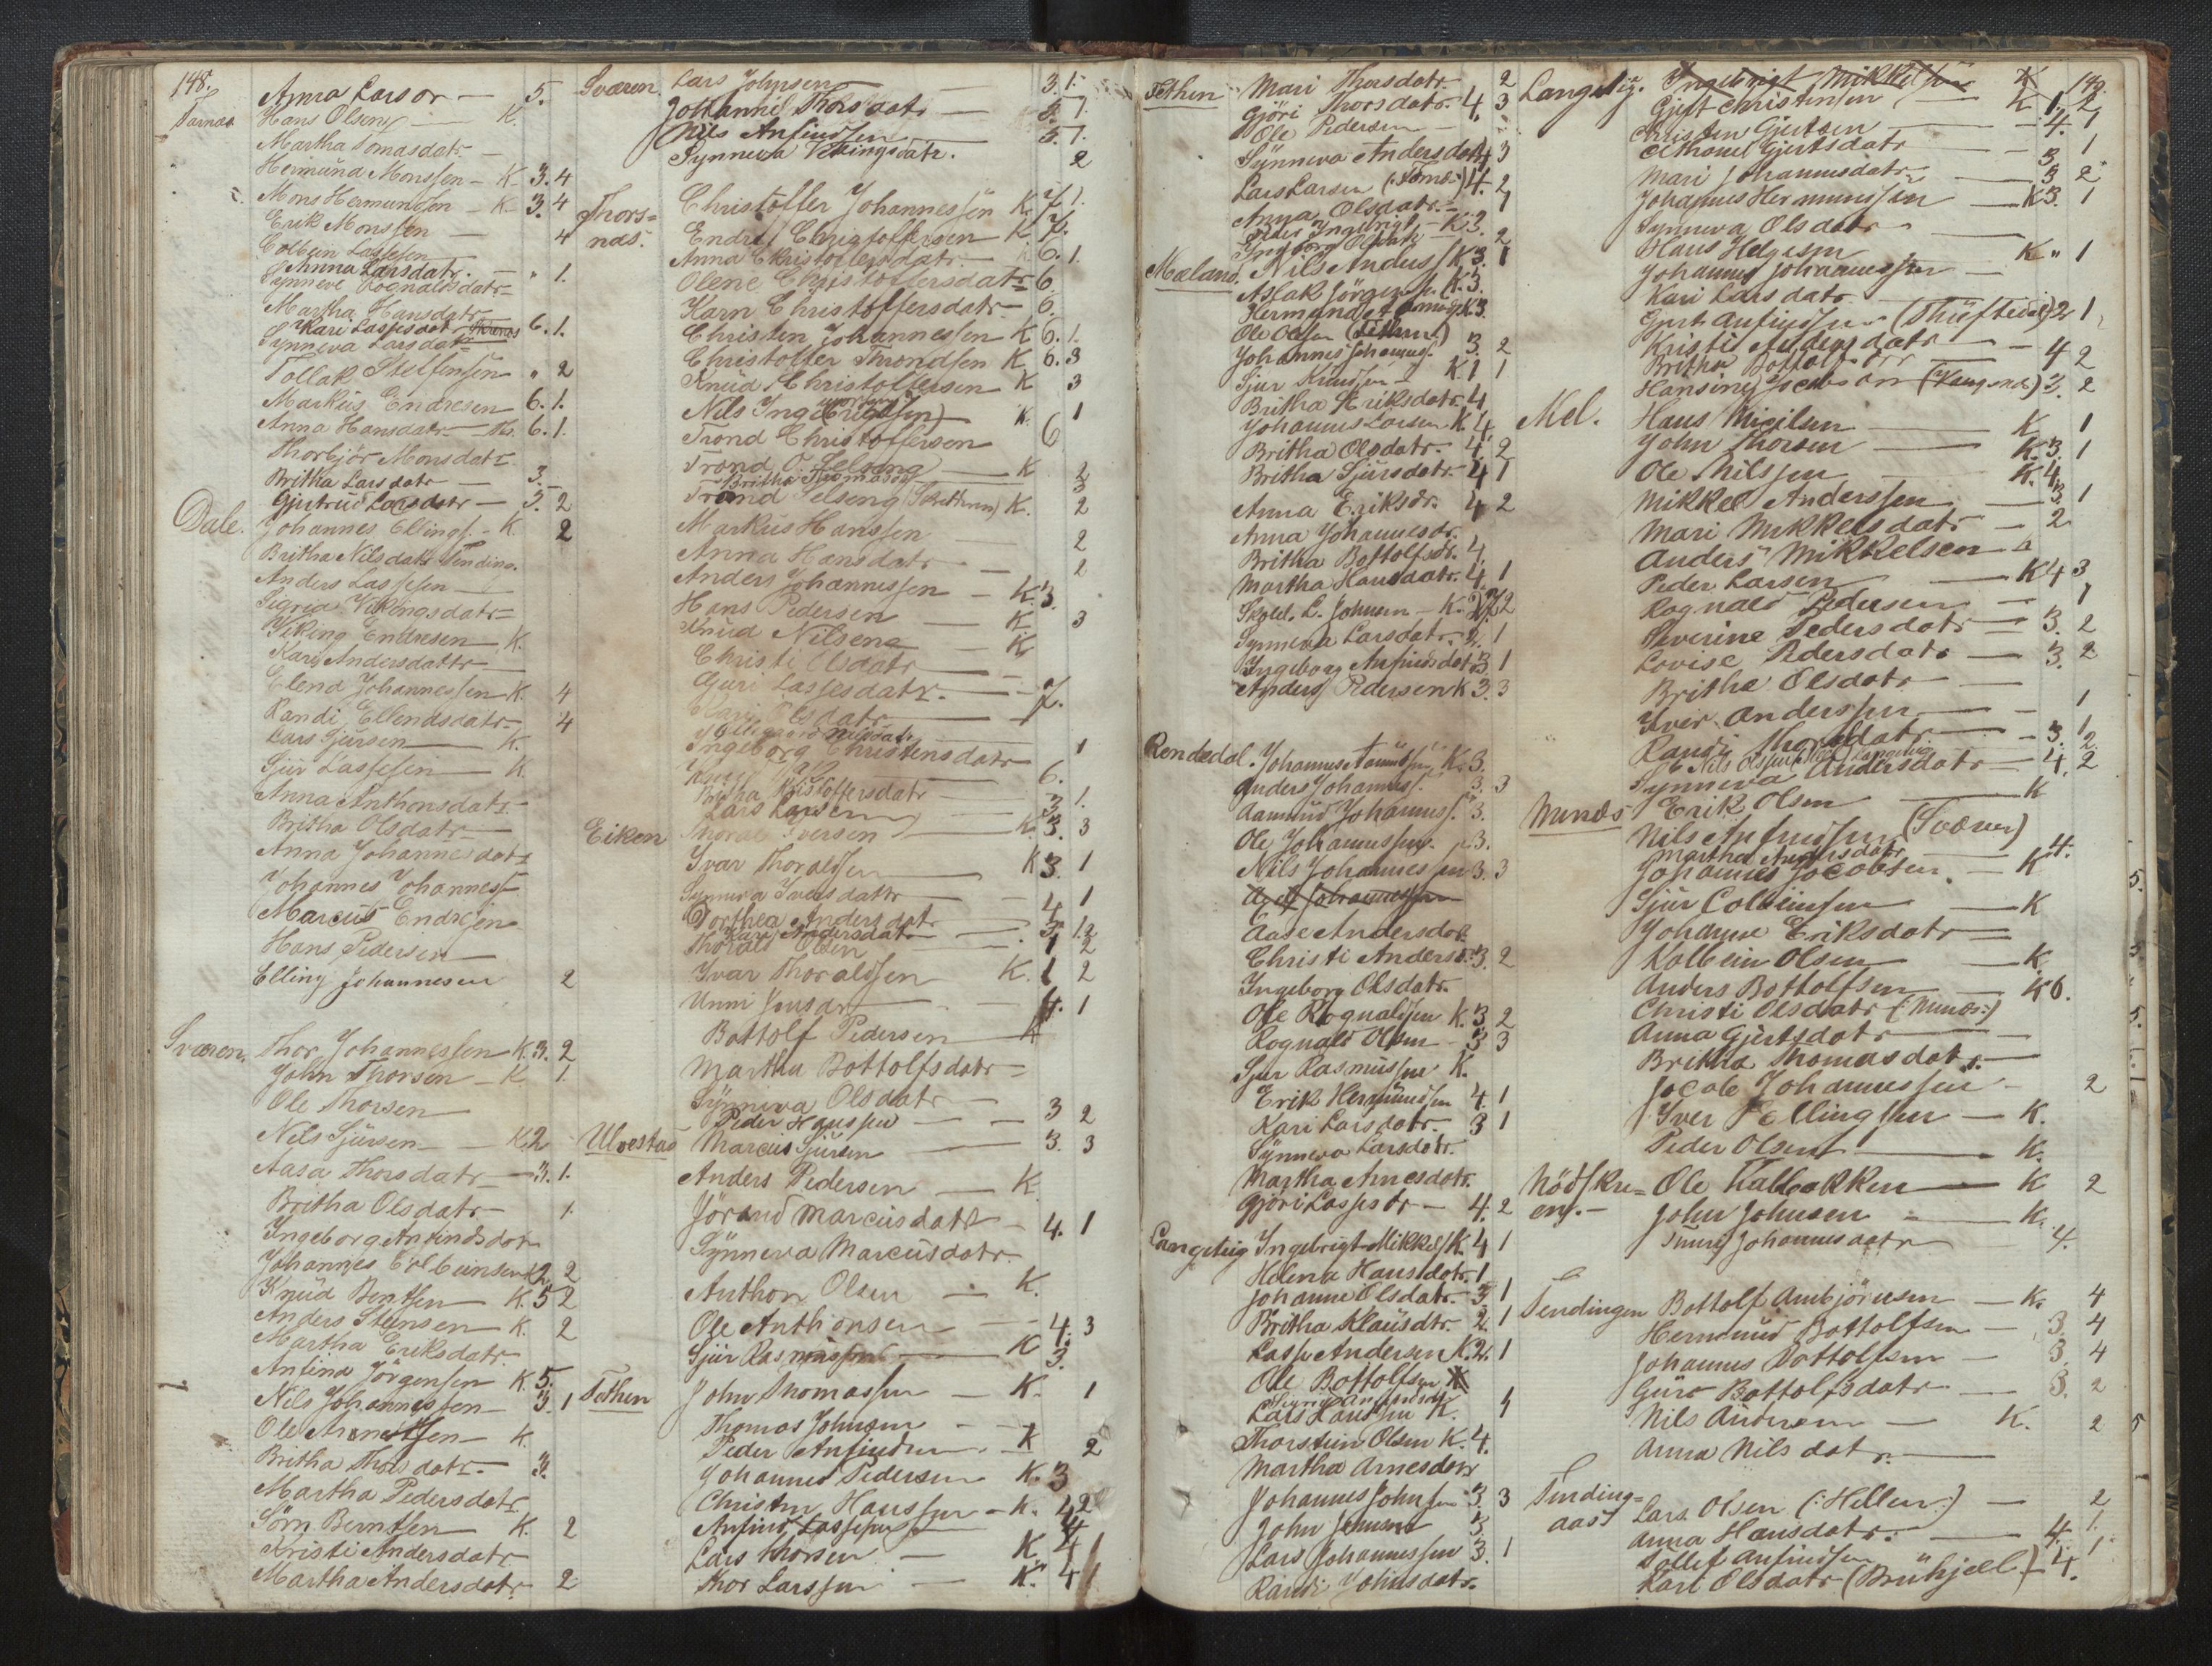 148.
Anna Larsdr — 5.
Tarnas Hans Olsen — K.
Martha Tomasdatr. —
Hermund Monssen — K. 3. 4
Mons Hermundsen — K. 3. 4
Erik Monssen — 4
Colbein Lassesen
Anna Larsdatr. — " 1.
Synneve Rognaldsdatr
Martha Hansdatr
Kari Lassesdatr 6. 1.
Synneva Larsdatr
Tollak Steffensen " 2
Markus Endresen 6. 1.
Anna Hansdatr 6. 1.
Thorbjør Monsdatr
Britha Larsdatr — 3.
Gjertrud Larsdatr — 3. 2
Dale. Johannes Ellings. — K. 2
Britha Nilsdatr Tending.
Anders Lassesen —
Sigria Vikingsdatr
Viking Endresen K.
Kari Andersdattr
Elend Johannessen K. 4
Randi Ellendsdatr 4
Lars Sjursen — K.
Sjur Lassesen — K
Anna Anthonsdatr
Britha Olsdatr
Anna Johannesdatr
Johannes Johanness.
Marcus Endresen
Hans Pedersen
Elling Johannesen 2
Sværen. Thor Johannessen K. 3. 2
John Thorsen — K 1.
Ole Thorsen
Nils Sjursen — K 2
Aasa Thorsdatr — 3. 1.
Britha Olsdatr 1.
Ingeborg Anfindsdatr
Johannes Colbeinsen K 2 2
Knud Bentsen — K. 5 2
Anders Steensen — K. 2
Martha Eriksdatr.
Anfind Jörgensen K. 5.
Nils Johannessen — 3. 1
Ole — K.
Britha Thorsdatr. 3.
Martha Pedersdatr
Sörn Berntsen K. 2
Kristi Andersdatr
Martha Andersdatr 2
Sværen. Lars Johnsen — 3. 1.
Johanne Thorsdatr — 3. 1.
Nils Anfindsen — 3. 1.
Synneva Vikingsdatr. 2
Thors= Christoffer Johannessen K 7. 1.
nes. Endre Christoffersen K 7.
Anna Christoffersdatr — 6. 1.
Olene Christoffersdatr 6.
Karn Christoffersdatr — 6.
Christen Johannessen K 6. 1.
Christoffer Throndsen K 6. 3
Knud Christoffersen K 3
Nils Ingebrigtsen K. 1
Trond Christoffersen 6
Trond O. Selseng — K 2
Britha Thomasdr 3
Trond Selseng K. 2
Markus Hanssen — 2
Anna Hansdatr — 2
Anders Johannessen — K. 3.
Hans Pedersen — K 3
Knud Nilseng — K
Christi Olsdatr —
Guri Lassesdatr. — 7.
Kari Olsdatr —
Nilsdatr
Ingeborg Christensdatr 1
6.
Britha Kristoffersdatr
Lars Larsen 3. 1.
Eiken Thorald Iversen — K. 3. 3
Ivar Thoraldsen — K 3. 1
Synneva Iversdattr — 4 1
Dorthea Andersdatr
Kari Andersdatr — 3. 1. 2
Thorald Olsen 1 2
Ivar Thoraldsen K. 1 2
Unni Jensdr — 4. 1
Bottolf Pedersen K
Martha Bottolfsdatr
Synneva Olsdatr —
Peder Hanssen — 3 2
Ulvestad Marcus Sjursen — 3. 3
Anders Pedersen — K.
Jörand Marcusdatr — 4. 1
Synneva Marcusdatr
Anthon Olsen — K.
Ole Anthonsen — 4. 3
Sjur Rasmussen — K 3.
Tethen John Thomassen — K. 1
Thomas Johnsen — —
Peder Anfindsen — K 2
Johannes Pedersen K. 3
Christen Hanssen — K. 4 2
Anfind Lassesen 4
Lars Thorsen — K 4 1
Thor Larssen — K. 4 1
Tethen Mari Thorsdatr 2
Gjöri Thorsdatr. 4. 3
Ole Pedersen —
Synneva Andersdatr 4 3
Lars Larsen 4. 2
Anna Olsdatr. — 1
Ingebrigt — K. 3.
Ingeborg Olsdatr 2
Mæland. Nils Anders K 3. 1
Aslak Jörgens. K. 3.
Hermund K 3.
Ole Olsen (Tethen)
Johannes Johannes. 3. 2
Sjur Knudsen — K 1 1
Britha Eriksdatr 4
Johannes Larsen K. 4.
Britha Olsdatr. 4. 2
Britha Sjursdatr 4 1
Anna Eriksdr. 4 2
Anna Johannesdr.
Britha Bottolfsdr. 4
Martha Hansdatr. 4. 1
Skoll. L. Johnsen — K. 2
Synneva Larsdatr. 2. 1
Ingeborg Anfindsdatr 3 1
Anders Pedersen K 3. 3
Rendedal. Johannes Aamundsen K. 3.
Anders Johannes. 3. 3
Aamund Johannes. 3.
Ole Johannessen. 3.
Nils Johannessen 3. 3
Aase Andersdatr
Christi Andersdr. 3. 2
Ingeborg Olsdatr.
Ole Rognaldsen K. 3. 2
Rognald Olsen — 3 3
Sjur Rasmussen K.
Erik Hermundsen 4 1
Kari Larsdatr. 3 1
Synneva Larsdatr.
Martha Arnesdatr.
Gjöri Lassesdr — 4. 2
Langeteig Ingebrigt Mikkels. K. 4 1
Helena Hansdatr. 1
Johanne Olsdatr. 3. 1
Britha Klausdtr. 2. 1
Lasse Andersen K. 2. 1
Ole Bottolfsen K
Lars Hanssen K. 4
Thorstein Olsen K. 4.
Martha Arnesdatr
Johannes Johnsen 3. 3
John Johnsen 3.
Lars Johannessen 3. 1
Randi Johnsdatr.
149.
Langeteig. Ingebrigt Mikkelsen K
Gjert Christensen — K 1. 2
Christen Gjertsen — 4. 1
Gjertsdatr — 1
Mari Johannesdatr — 3 2
Johannes Hermundsen — K 3. 1
Synneva Olsdatr —
Hans Helgesen K " 1
Johannes Johannessen —
Kari Larsdatr.
Gjert Anfindsen (Thuftedal) 2 1
Kristi Andersdatr — 4 2
Britha Bottolfsdr
Hansine Jacobsdr 3. 2
Mel. Hans Micilsen — K 1
John Thorsen — K. 3. 1
Ole Nilssen — K. 4.
Mikkel Anderssen — 3. 1
Mari Mikkelsdatr — 2
Anders Mikkelsen
Peder Larsen — K 4 3
Rognald Pedersen — 1
Severine Pedersdatr — 3. 2
Lovise Pedersdatr — 3. 2
Britha Olsdatr —
Iver Anderssen — 1
Randi Thorsdatr — 3. 1
Nils Olsen 2
Synneva Andersdatr — 4. 2
Munæs Erik Olsen — K
Nils Anfindsen (Sværen)
Martha Andersdatr 4.
Johannes Jacobsen. — K
Sjur Colbeinsen — K
Johanne Eriksdatr —
Kolbein Olsen — K.
Anders Bottolfsen — K 6.
Christi Olsdatr (: Munæs:)
Anna Gjertsdatr
Britha Thomasdatr. —
Jacob Johannessen — 2
Iver Pellingsen — K.
Peder Olsen — K.
Nödskre= Ole Kalbakken — K 2
en. — John Johnsen — K.
Johannesdatr 4.
Tendingen Bottolf Ambjörnsen — K. 4
Hermund Bottolfsen — 3 4
Johannes Bottolfsen — 3. 4
Guro Bottolfsdatr — 3. 2
Nils Andersen — K. 2
Anna Nilsdatr. —
Tending= Lars Olsen (: Hellen :) — 2
aas Anna Hansdatr. — 4. 1.
Tollef Anfindsen 1
Kari Olsdatr (Bruhjell) — 4.